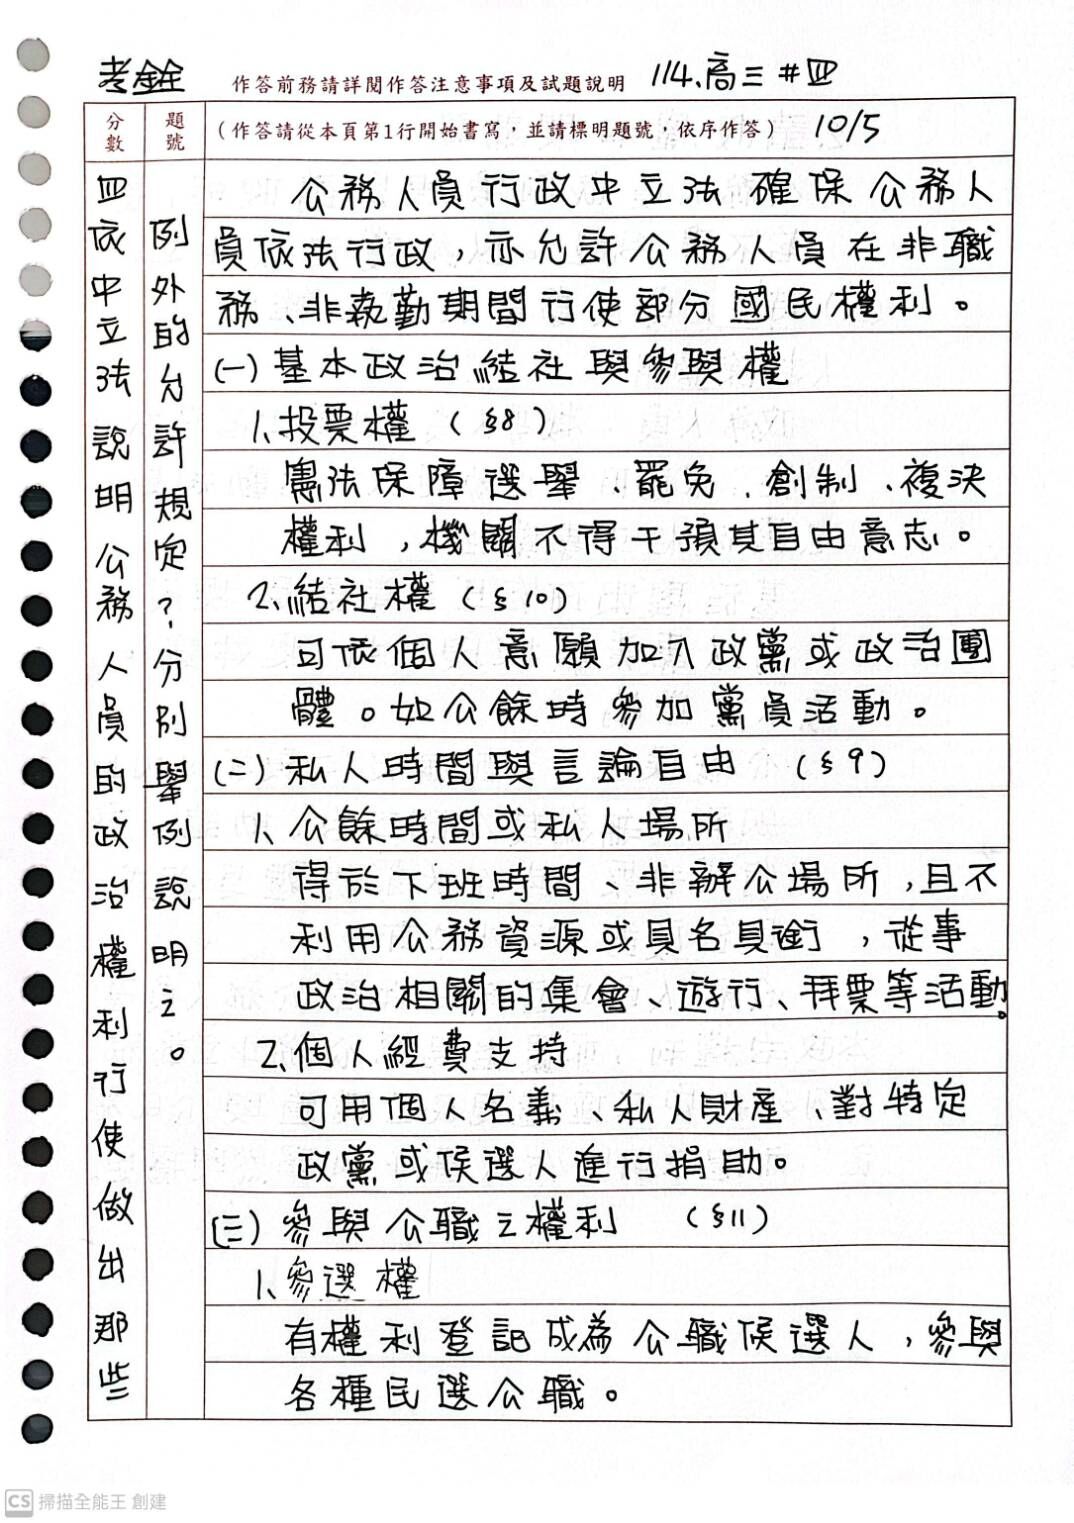 考銓
作答前務請詳閱作答注意事項及試題說明
114.高三#四
分數
題號
(作答請從本頁第1行開始書寫,並請標明題號,依序作答)
10/5
四依中立法說明公務人員的政治權利行使做出那些
例外的允許規定?分別舉例說明之。
公務人員行政中立法確保公務人
員依法行政,亦允許公務人員在非職
務、非執勤期間行使部分國民權利。
(一)基本政治結社與參與權
1、投票權(§8)
憲法保障選舉、罷免、創制、複決
權利,機關不得干預其自由意志。
2、結社權(§10)
可依個人意願加入政黨或政治團
體。如公餘時參加黨員活動。
(二)私人時間與言論自由(§9)
1、公餘時間或私人場所
得於下班時間、非辦公場所,且不
利用公務資源或具名具銜,從事
政治相關的集會、遊行、拜票等活動。
2、個人經費支持
可用個人名義、私人財產、對特定
政黨或候選人進行捐助。
(三)參與公職之權利(§11)
1、參選權
有權利登記成為公職候選人,參與
各種民選公職。
CS 掃描全能王 創建